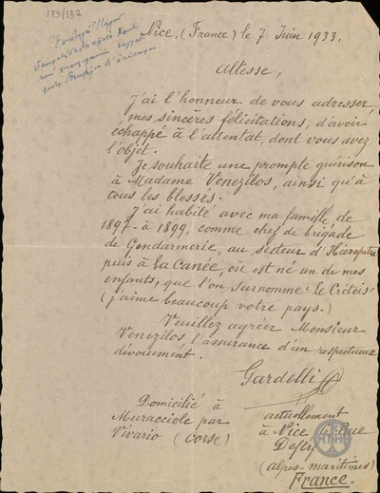 173/132
Nice, (France) le 7 Juin 1933.
Altesse,
J'ai l'honneur de vous adresser,
mes sincères félicitations, d'avoir
échappé à l'attentat, dont vous avez
l'objet.
Je souhaite une prompte guérison
à Madame Venezilos, ainsi qu'à
tous les blessés.
J'ai habité avec ma famille de
1897 à 1899, comme chef de brigade
de Gendarmerie, au secteur d'Hierapetra
puis à La Canée, où est né un de mes
enfants, que l'on surnomme "Le Crétois"
(j'aime beaucoup votre pays.)
Veuillez agréer Monsieur
Venezilos l'assurance d'un respectueux
dévouement.
Gardelli
Domicilié à
Muracciole par
Vivario (Corse)
actuellement
à Nice Rue
Défly
(alpes-maritimes)
France.